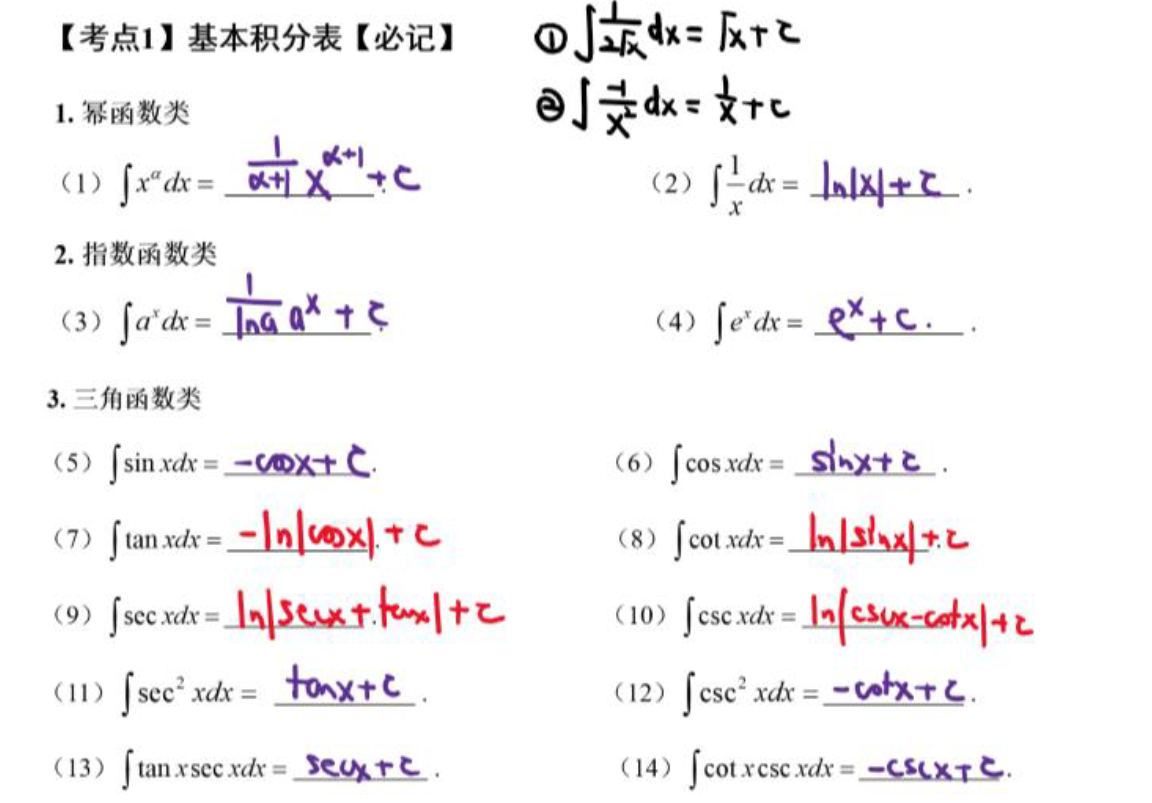 【考点1】基本积分表【必记】 ① ∫ 1/(2√x) dx = √x + C
② ∫ -1/x² dx = 1/x + C
1. 幂函数类
(1) ∫ x^α dx = 1/(α+1) x^(α+1) + C. (2) ∫ 1/x dx = ln|x| + C.
2. 指数函数类
(3) ∫ a^x dx = 1/(ln a) a^x + C. (4) ∫ e^x dx = e^x + C. .
3. 三角函数类
(5) ∫ sin xdx = -cosx + C. (6) ∫ cos xdx = sinx + C.
(7) ∫ tan xdx = -ln|cosx| . + C (8) ∫ cot xdx = ln|sinx| + C.
(9) ∫ sec xdx = ln|secx + .tanx| + C (10) ∫ csc xdx = ln|cscx - cotx| + C
(11) ∫ sec² xdx = tanx + C. (12) ∫ csc² xdx = -cotx + C.
(13) ∫ tan x sec xdx = secx + C. (14) ∫ cot x csc xdx = -cscx + C.